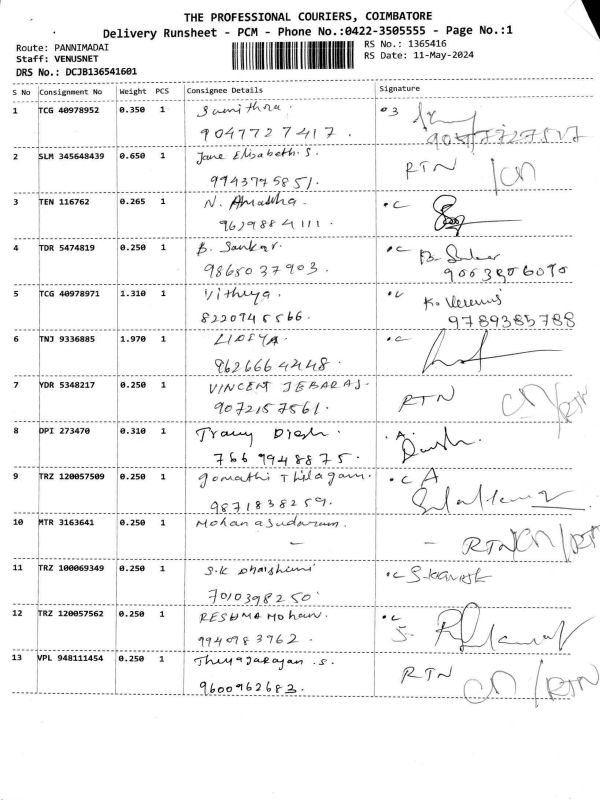 THE PROFESSIONAL COURIERS, COIMBATORE
Delivery Runsheet - PCM - Phone No.:0422-3505555 - Page No.:1
Route: PANNIMADAI
RS No.: 1365416
Staff: VENUSNET
RS Date: 11-May-2024
DRS No.: DCJB136541601
S No Consignment No Weight PCS Consignee Details Signature
1 TCG 40978952 0.350 1 Sumithra.
9047727417.
2 SLM 345648439 0.650 1 Jane Elizabeth.S. RTN CN
9943745851.
3 TEN 116762 0.265 1 N. .C
9629884111.
4 TDR 5474819 0.250 1 B. Sankar. .C
9865037903.
5 TCG 40978971 1.310 1 Vithya.
8220945566. 9789385788
6 TNJ 9336885 1.970 1 LIDIYA. .C
9626664448.
7 YDR 5348217 0.250 1 VINCENT JEBARAJ. RTN CN/RTN
9072157561.
8 DPI 273470 0.310 1 .A.
7669948875.
9 TRZ 120057509 0.250 1 Gomathi Thilagam. .C A
9871838259.
10 MTR 3163641 0.250 1 Mohanasudaram. RTN CN/RTN
- -
11 TRZ 100069349 0.250 1 S.K .C
7010398250.
12 TRZ 120057562 0.250 1 RESHMA Mohan. .C
9940983962.
13 VPL 948111454 0.250 1 Theyagarajan .S. RTN CN/RTN
9600962683.